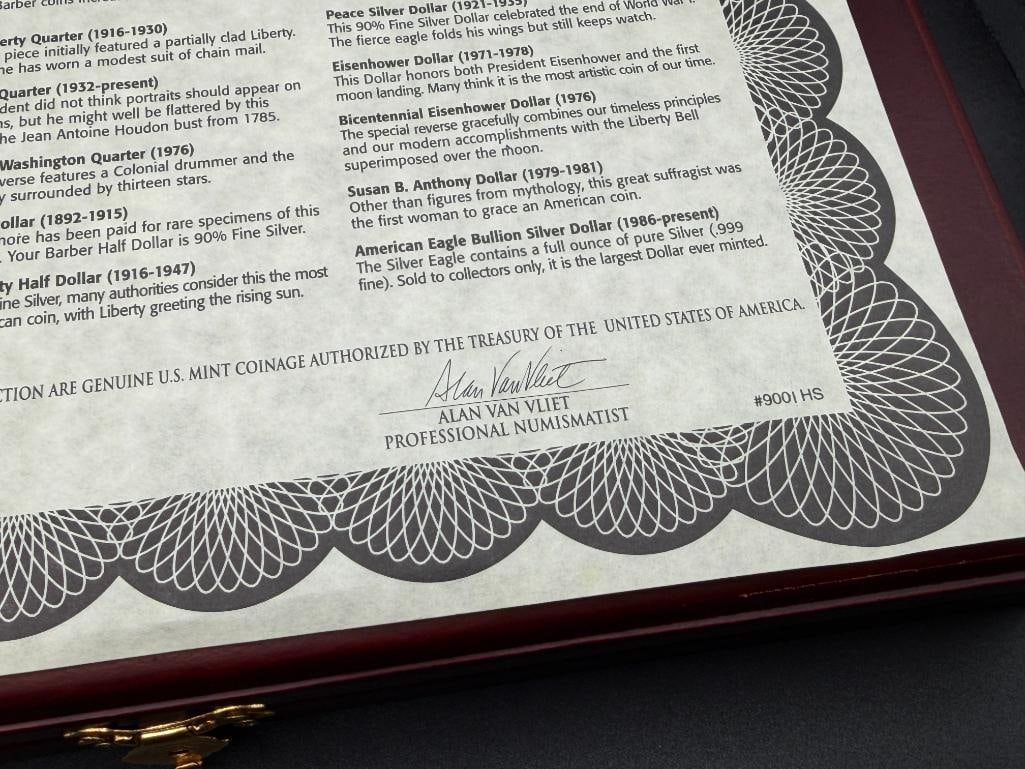 Barber coins
erty Quarter (1916-1930)
piece initially featured a partially clad Liberty.
he has worn a modest suit of chain mail.
Quarter (1932-present)
dent did not think portraits should appear on
s, but he might well be flattered by this
he Jean Antoine Houdon bust from 1785.
Washington Quarter (1976)
verse features a Colonial drummer and the
y surrounded by thirteen stars.
ollar (1892-1915)
more has been paid for rare specimens of this
. Your Barber Half Dollar is 90% Fine Silver.
ty Half Dollar (1916-1947)
ine Silver, many authorities consider this the most
can coin, with Liberty greeting the rising sun.
Peace Silver Dollar (1921-1935)
This 90% Fine Silver Dollar celebrated the end of World War I.
The fierce eagle folds his wings but still keeps watch.
Eisenhower Dollar (1971-1978)
This Dollar honors both President Eisenhower and the first
moon landing. Many think it is the most artistic coin of our time.
Bicentennial Eisenhower Dollar (1976)
The special reverse gracefully combines our timeless principles
and our modern accomplishments with the Liberty Bell
superimposed over the moon.
Susan B. Anthony Dollar (1979-1981)
Other than figures from mythology, this great suffragist was
the first woman to grace an American coin.
American Eagle Bullion Silver Dollar (1986-present)
The Silver Eagle contains a full ounce of pure Silver (.999
fine). Sold to collectors only, it is the largest Dollar ever minted.
CTION ARE GENUINE U.S. MINT COINAGE AUTHORIZED BY THE TREASURY OF THE UNITED STATES OF AMERICA.
Alan Van Vliet
ALAN VAN VLIET
PROFESSIONAL NUMISMATIST
#9001 HS